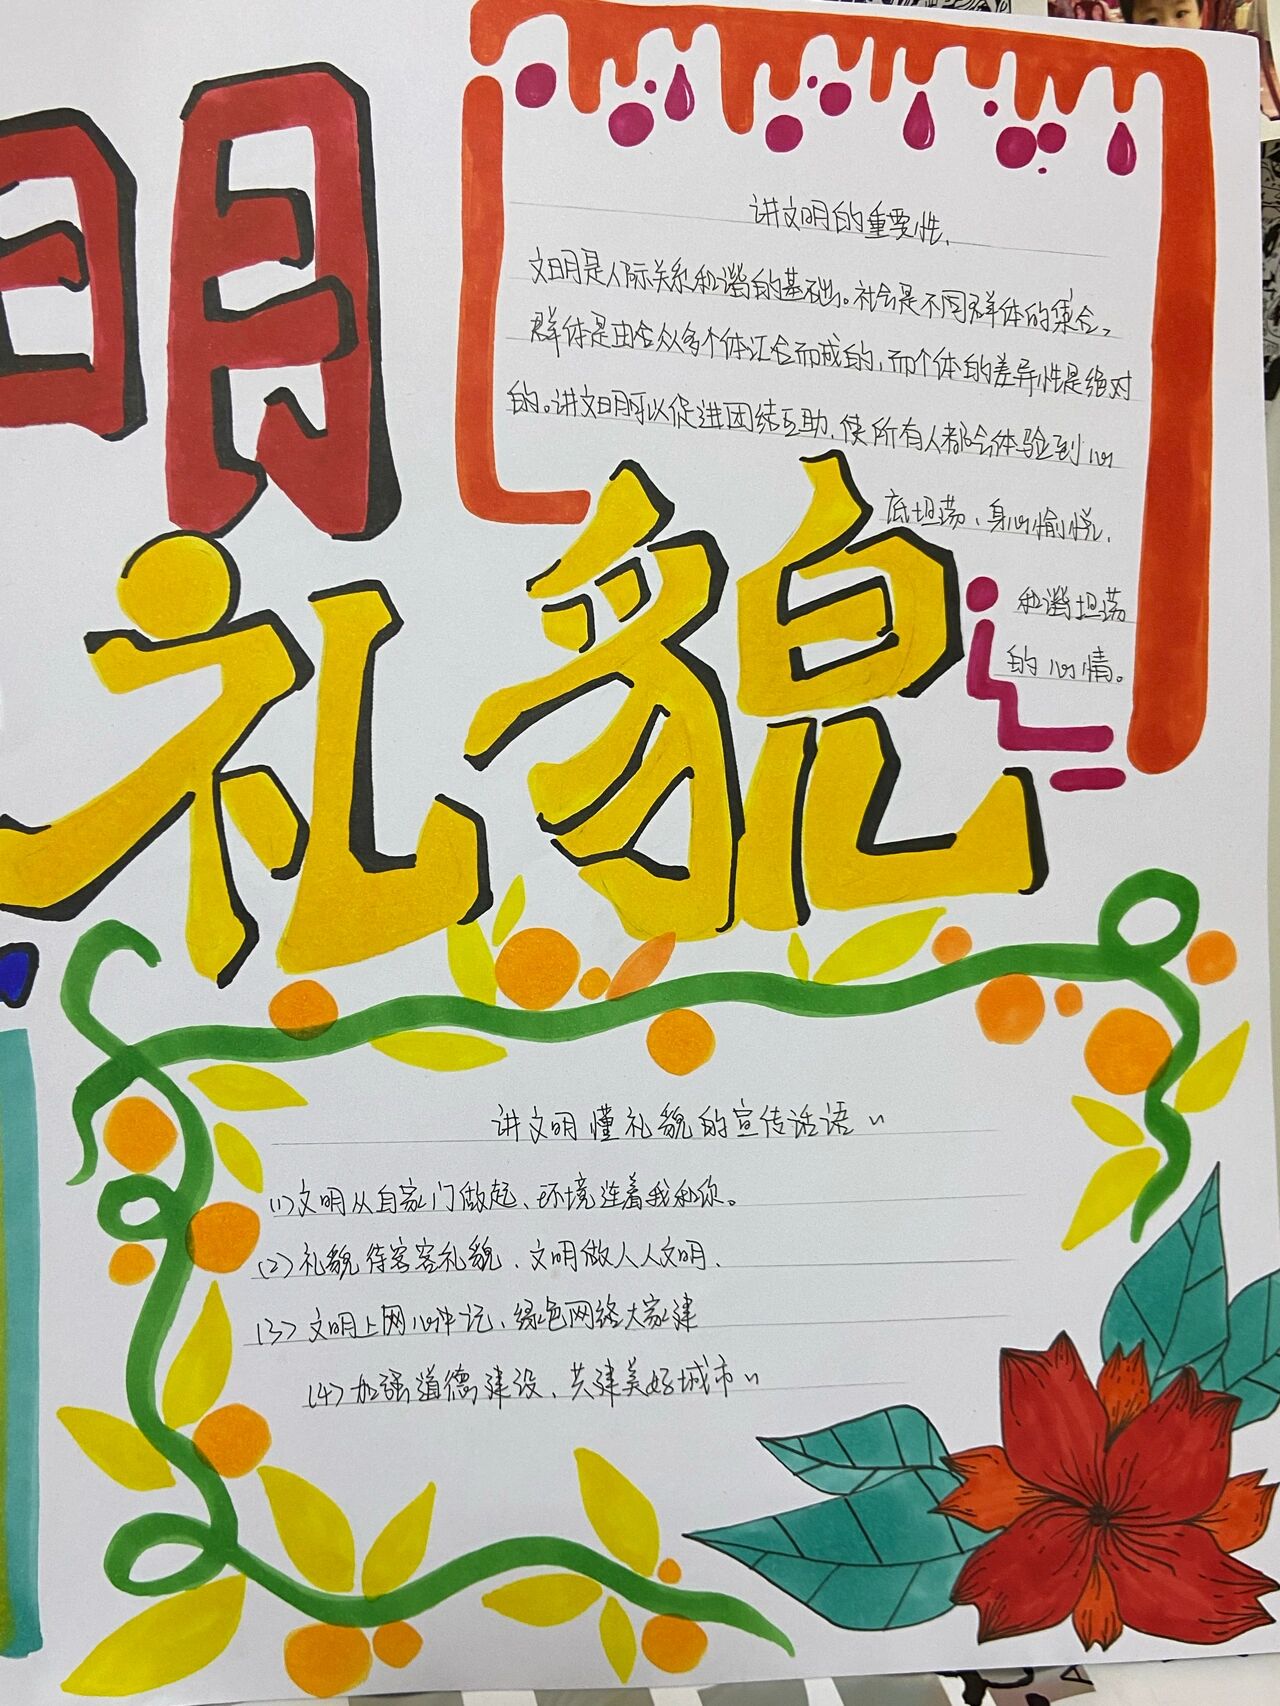 明
礼貌
讲文明的重要性.
文明是人际关系和谐的基础。社会是不同群体的集合,
群体是由合众多个体汇合而成的,而个体的差异性是绝对
的。讲文明可以促进团结互助,使所有人都会体验到心
底坦荡、身心愉悦,
和谐坦荡
的心情。
讲文明懂礼貌的宣传话语
(1)文明从自家门做起、环境连着我和你。
(2)礼貌待客客礼貌、文明做人人文明、
(3)文明上网心冲记、绿色网络大家建
(4)加强道德建设、共建美好城市